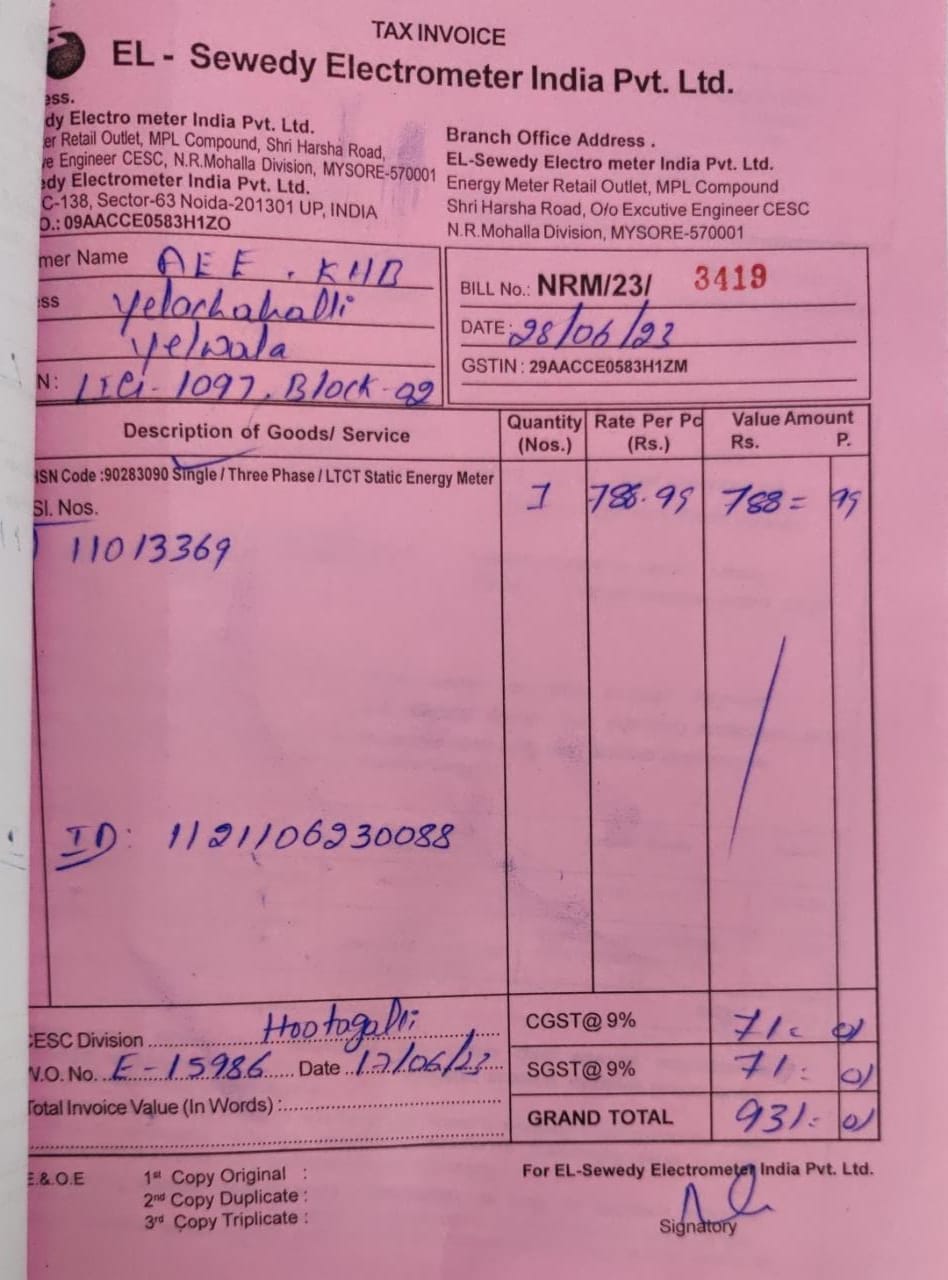 TAX INVOICE
EL - Sewedy Electrometer India Pvt. Ltd.
ess.
dy Electro meter India Pvt. Ltd.
er Retail Outlet, MPL Compound, Shri Harsha Road,
e Engineer CESC, N.R.Mohalla Division, MYSORE-570001
edy Electrometer India Pvt. Ltd.
C-138, Sector-63 Noida-201301 UP, INDIA
O.: 09AACCE0583H1ZO
Branch Office Address .
EL-Sewedy Electro meter India Pvt. Ltd.
Energy Meter Retail Outlet, MPL Compound
Shri Harsha Road, O/o Excutive Engineer CESC
N.R.Mohalla Division, MYSORE-570001
mer Name AEE . KHB
ess Yelachahalli
Yelwala
N: LIG-1097, Block-92
BILL No.: NRM/23/ 3419
DATE: 28/06/23
GSTIN : 29AACCE0583H1ZM
Description of Goods/ Service Quantity (Nos.) Rate Per Pc (Rs.) Value Amount Rs. P.
HSN Code :90283090 Single / Three Phase / LTCT Static Energy Meter 1 788.99 788= 99
Sl. Nos.
11013369
ID: 1121106230088
CESC Division Hootagalli
W.O. No. E-15986 Date 17/06/23
Total Invoice Value (In Words) :
CGST@ 9% 71. 01
SGST@ 9% 71. 01
GRAND TOTAL 931. 01
E.& O.E
1st Copy Original :
2nd Copy Duplicate :
3rd Copy Triplicate :
For EL-Sewedy Electrometer India Pvt. Ltd.
Signatory